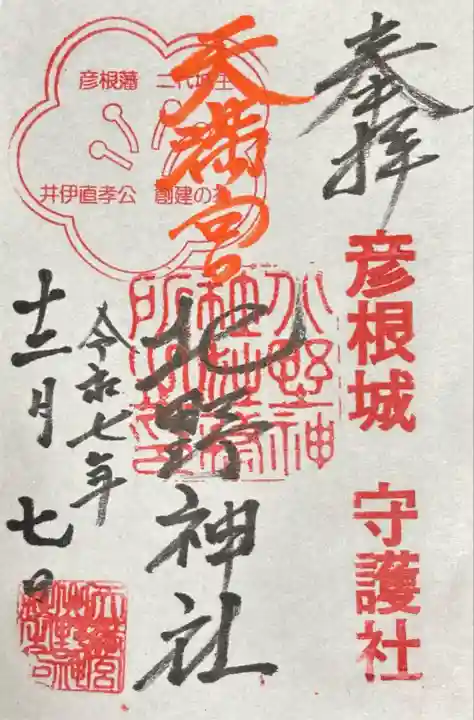 奉拝
彦根城 守護社
天満宮
北野神社
彦根藩 二代城主
井伊直孝公 創建の
令和七年
十二月七日